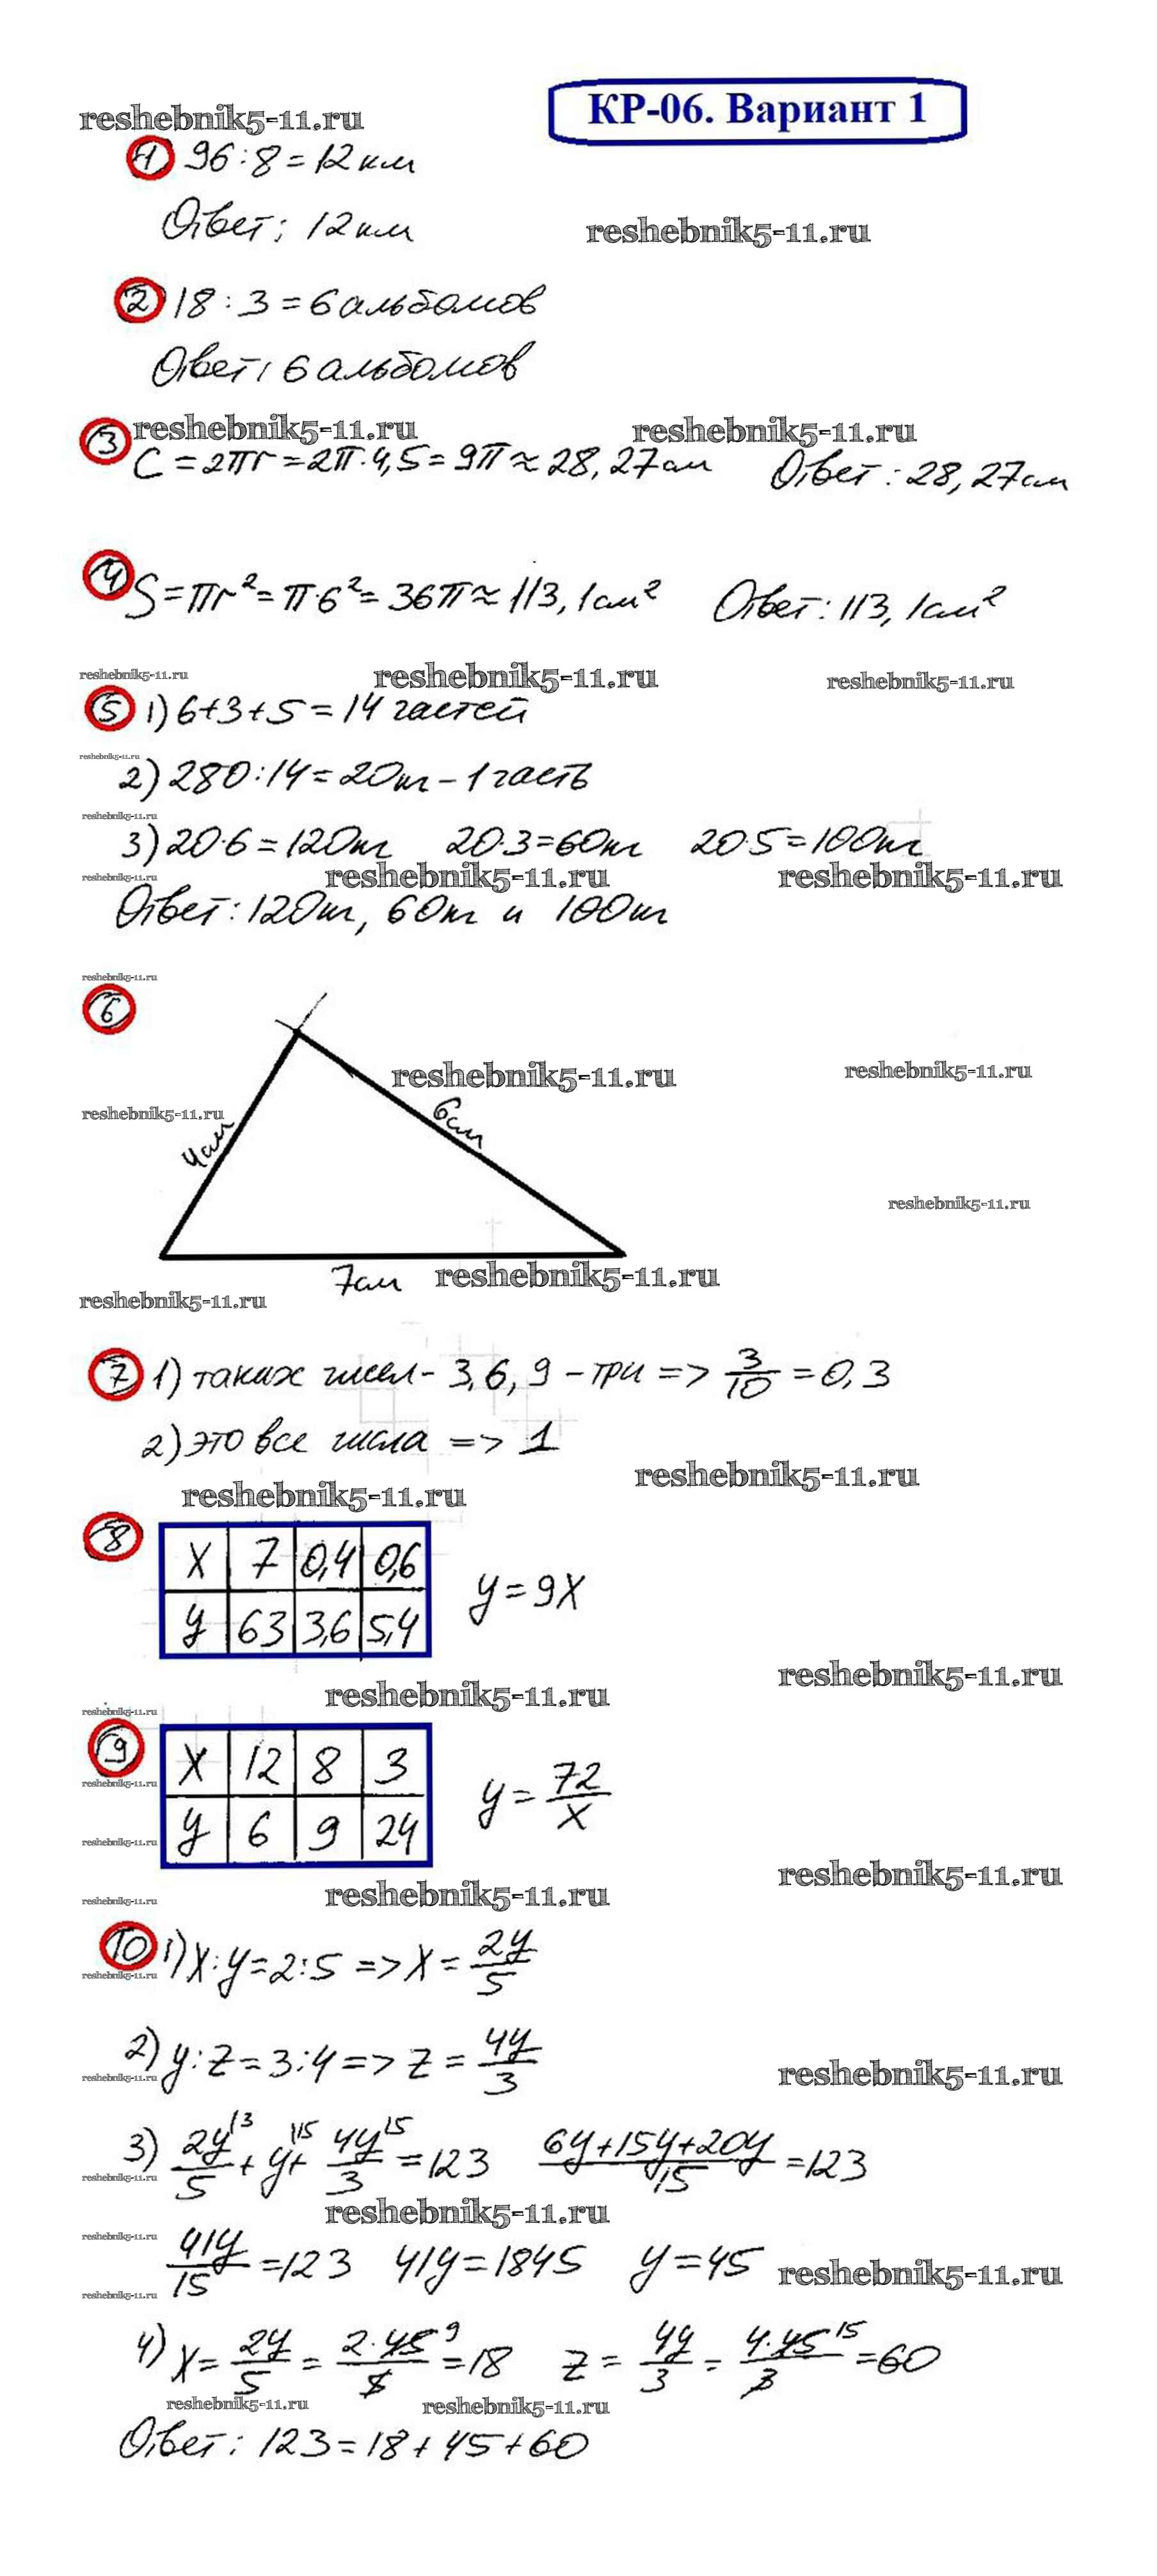 reshebnik5-11.ru КР-06. Вариант 1
1 96:8=12км
Ответ: 12км
reshebnik5-11.ru
2 18:3=6 альбомов
Ответ: 6 альбомов
reshebnik5-11.ru reshebnik5-11.ru
3 C=2πr=2π·4,5=9π≈28,27см Ответ: 28,27см
4 S=πr²=π·6²=36π≈113,1см² Ответ: 113,1см²
reshebnik5-11.ru reshebnik5-11.ru reshebnik5-11.ru
5 1) 6+3+5=14 частей
reshebnik5-11.ru
2) 280:14=20кг-1 часть
reshebnik5-11.ru
3) 20·6=120кг 20·3=60кг 20·5=100кг
reshebnik5-11.ru reshebnik5-11.ru reshebnik5-11.ru
Ответ: 120кг, 60кг и 100кг
reshebnik5-11.ru
6
reshebnik5-11.ru reshebnik5-11.ru
reshebnik5-11.ru
4см 6см
reshebnik5-11.ru
7см reshebnik5-11.ru
reshebnik5-11.ru
7 1) таких чисел - 3, 6, 9 - три => 3/10 = 0,3
2) это все числа => 1
reshebnik5-11.ru
reshebnik5-11.ru
8 X 7 0,4 0,6
y 63 3,6 5,4
y=9X
reshebnik5-11.ru reshebnik5-11.ru
reshebnik5-11.ru
9 X 12 8 3
reshebnik5-11.ru
y 6 9 24
y=72/X
reshebnik5-11.ru
reshebnik5-11.ru
reshebnik5-11.ru reshebnik5-11.ru
10 1) X:y=2:5 => X=2y/5
reshebnik5-11.ru
2) y:z=3:4 => z=4y/3
reshebnik5-11.ru reshebnik5-11.ru
3) 2y/5 + y + 4y/3 = 123 (6y+15y+20y)/15 = 123
reshebnik5-11.ru
reshebnik5-11.ru
reshebnik5-11.ru
41y/15=123 41y=1845 y=45 reshebnik5-11.ru
reshebnik5-11.ru
4) X=2y/5=2·45/5=18 z=4y/3=4·45/3=60
reshebnik5-11.ru reshebnik5-11.ru
Ответ: 123=18+45+60